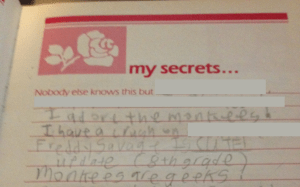 my secrets...
Nobody else knows this but
I adore the monkees!
I have a crush on
Freddy Savage
(8th grade)
monkees are geeks!